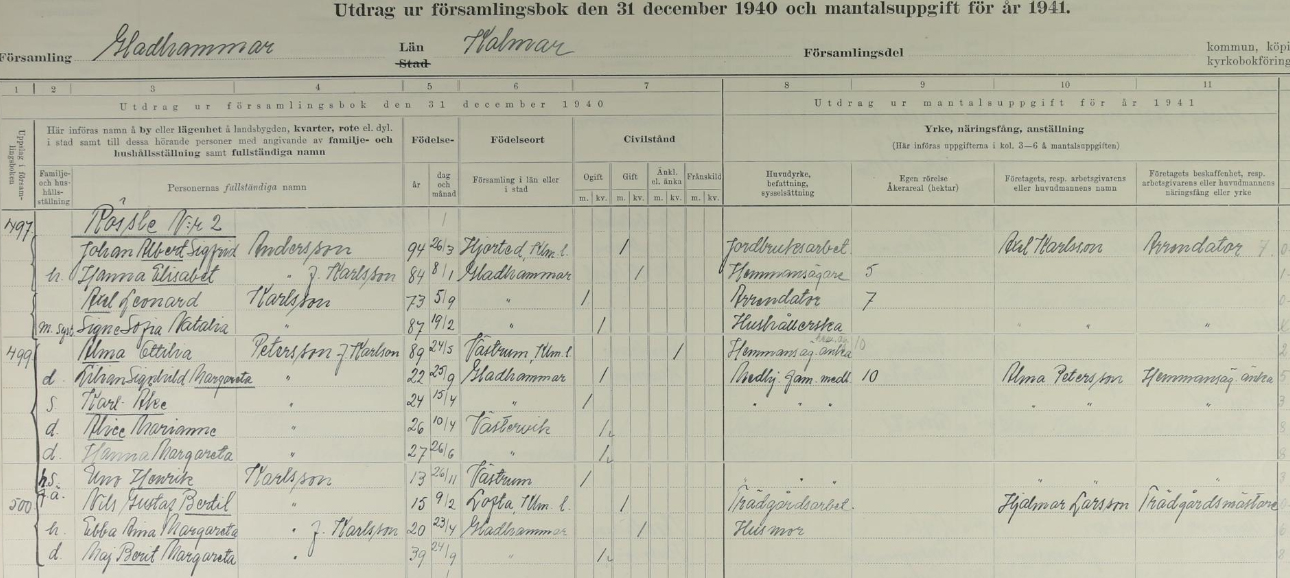 Utdrag ur församlingsbok den 31 december 1940 och mantalsuppgift för år 1941.
Församling Gladhammar Län Kalmar Församlingsdel kommun, köpi
Stad kyrkobokföring
1 2 3 4 5 6 7 8 9 10 11
Utdrag ur församlingsbok den 31 december 1940 Utdrag ur mantalsuppgift för år 1941
Uppslag i församlingsboken
Här införas namn å by eller lägenhet å landsbygden, kvarter, rote el. dyl. i stad samt till dessa hörande personer med angivande av familje- och hushållsställning samt fullständiga namn
Födelse- Födelseort Civilstånd Yrke, näringsfång, anställning
(Här införas uppgifterna i kol. 3—6 å mantalsuppgiften)
Familje- och hushållsställning Personernas fullständiga namn år dag och månad Församling i län eller i stad Ogift Gift Änkl. el. änka Frånskild Huvudyrke, befattning, sysselsättning Egen rörelse Åkerareal (hektar) Företagets, resp. arbetsgivarens eller huvudmannens namn Företagets beskaffenhet, resp. arbetsgivarens eller huvudmannens näringsfång eller yrke
m. kv. m. kv. m. kv. m. kv.
497 Rossle N:r 2
Johan Albert Sigfrid Andersson 94 26/3 Hjorted, Klm. l. / Jordbruksarbet. Axel Karlsson Arrendator
h. Hanna Elisabet " f. Karlsson 84 8/1 Gladhammar / Hemmansägare 5
Axel Leonard Karlsson 73 5/9 " / Arrendator 7
m. syst. Signe Sofia Natalia " 87 19/2 " / Hushållerska " " "
499 Alma Ottilia Petersson f. Karlson 89 24/5 Västrum, Klm. l. / Hemmansäg. änka 10
d. Sigrid Margareta " 22 25/9 Gladhammar / Medhj. fam. medl. 10 Alma Petersson Hemmansäg. änka
s. Karl Åke " 24 15/4 " / " " " " " "
d. Alice Marianne " 26 10/4 Västervik /
d. Hanna Margareta " 27 26/6 " /
Uno Henrik Karlsson 13 26/11 Västrum / " " "
500 Nils Gustaf Bertil 15 9/2 Lofta, Klm. l. / Trädgårdsarbet. Hjalmar Larsson Trädgårdsmästare
h. Ebba Anna Margareta " f. Karlsson 20 23/4 Gladhammar / Husmor
d. Maj Berit Margareta " 39 24/9 " /